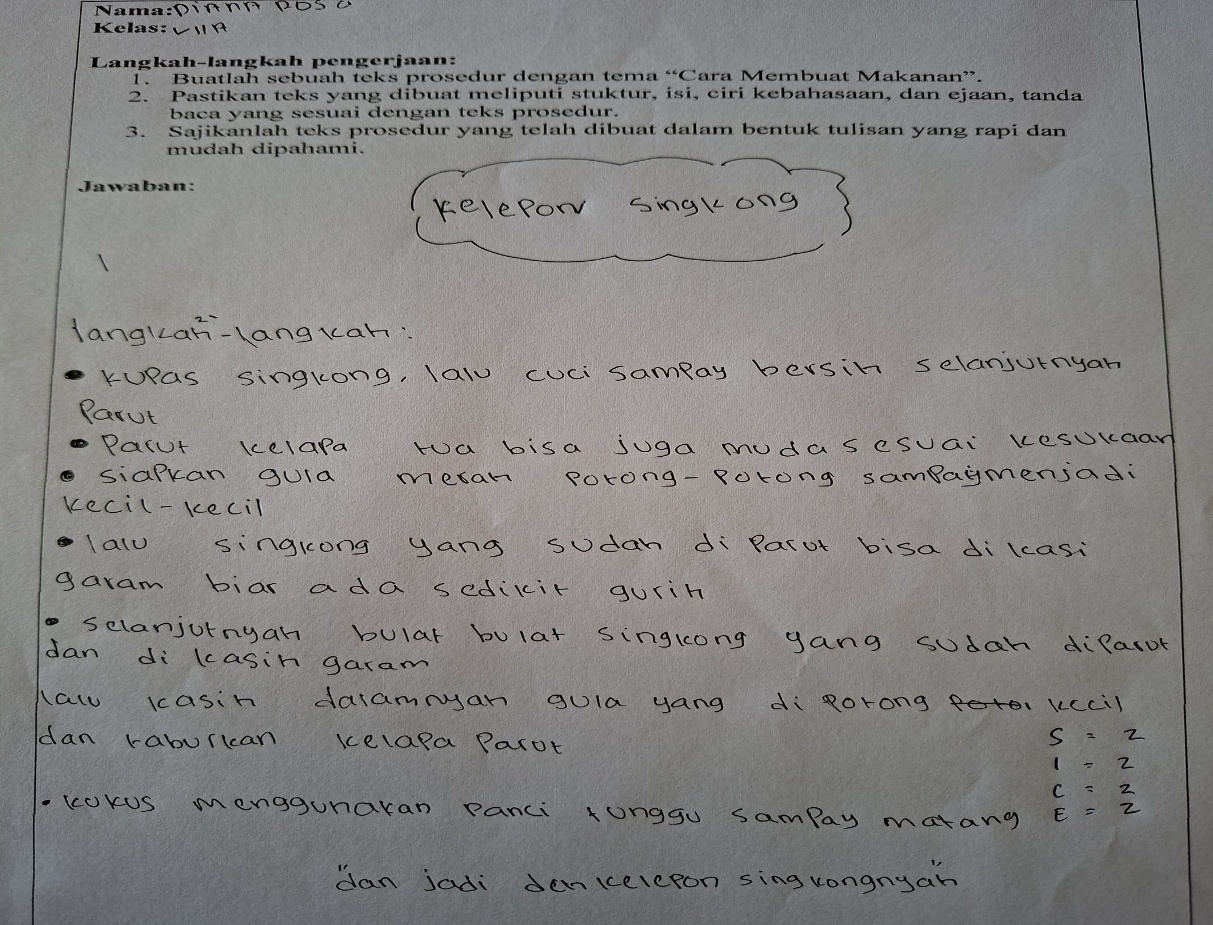 Nama: DIANA ROSA
Kelas: VIIA
Langkah-langkah pengerjaan:
1. Buatlah sebuah teks prosedur dengan tema “Cara Membuat Makanan”.
2. Pastikan teks yang dibuat meliputi stuktur, isi, ciri kebahasaan, dan ejaan, tanda
baca yang sesuai dengan teks prosedur.
3. Sajikanlah teks prosedur yang telah dibuat dalam bentuk tulisan yang rapi dan
mudah dipahami.
Jawaban:
Kelepon singkong
langkah-langkah :
• kupas singkong, lalu cuci sampay bersih selanjutnyah
Parut
• Parut kelapa tua bisa juga muda sesuai kesukaan
• siapkan gula merah potong-potong sampay menjadi
kecil-kecil
• lalu singkong yang sudah di parut bisa di kasi
garam biar ada sedikit gurih
• selanjutnyah bulat bulat singkong yang sudah diparut
dan di kasih garam
lalu kasih dalamnyah gula yang di potong kecil
dan taburkan kelapa parut
S = 2
I = 2
C = 2
• kukus menggunakan panci tunggu sampay matang
E = 2
"dan jadi deh kelepon singkongnyah"